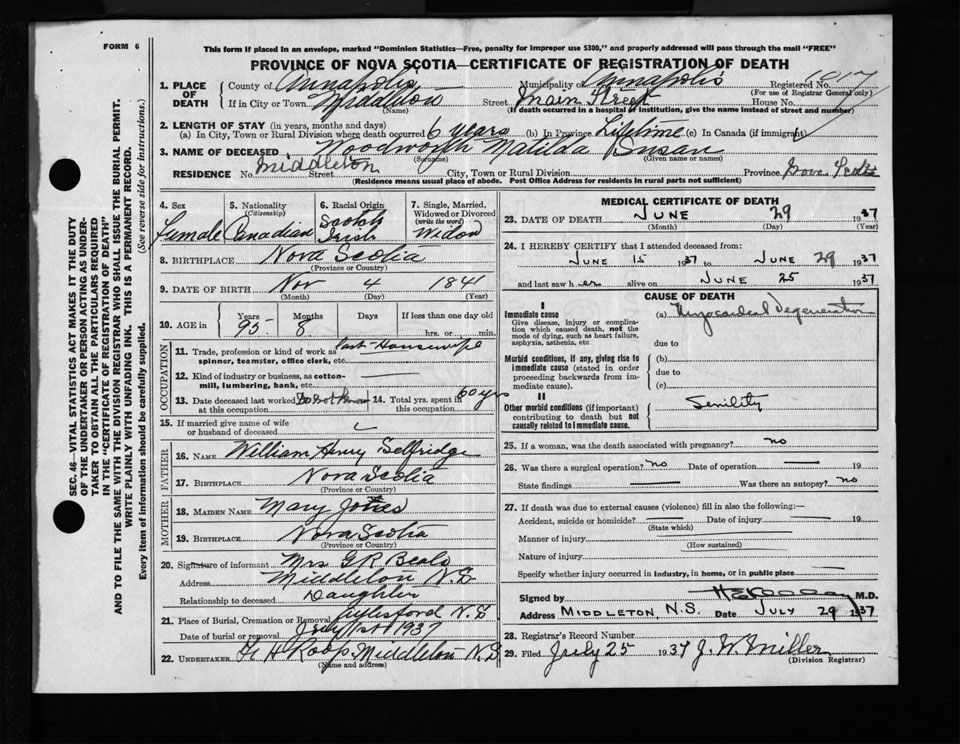 FORM 6
This form if placed in an envelope, marked "Dominion Statistics—Free, penalty for improper use $300," and properly addressed will pass through the mail "FREE"
PROVINCE OF NOVA SCOTIA—CERTIFICATE OF REGISTRATION OF DEATH
1. PLACE OF DEATH
County of Annapolis Municipality of Annapolis Registered No.
(For use of Registrar General only)
If in City or Town Middleton Street Main Street House No.
(Name) (If death occurred in a hospital or institution, give the name instead of street and number)
2. LENGTH OF STAY (in years, months and days)
(a) In City, Town or Rural Division where death occurred 6 years (b) In Province Lifetime (c) In Canada (if immigrant)
3. NAME OF DECEASED Woodworth Matilda Susan
(Surname) (Given name or names)
RESIDENCE No. Middleton Street City, Town or Rural Division Province Nova Scotia
(Residence means usual place of abode. Post Office Address for residents in rural parts not sufficient)
4. Sex Female
5. Nationality (Citizenship) Canadian
6. Racial Origin Scotch Irish
7. Single, Married, Widowed or Divorced (write the word) Widow
8. BIRTHPLACE Nova Scotia
(Province or Country)
9. DATE OF BIRTH Nov 4 1841
(Month) (Day) (Year)
10. AGE in Years 95 Months 8 Days If less than one day old hrs. or min.
OCCUPATION
11. Trade, profession or kind of work as spinner, teamster, office clerk, etc. Housewife
12. Kind of industry or business, as cotton-mill, lumbering, bank, etc.
13. Date deceased last worked at this occupation Do not know
14. Total yrs. spent in this occupation 60 yrs
15. If married give name of wife or husband of deceased
FATHER
16. NAME William Henry Selfridge
17. BIRTHPLACE Nova Scotia
(Province or Country)
MOTHER
18. MAIDEN NAME Mary Jones
19. BIRTHPLACE Nova Scotia
(Province or Country)
20. Signature of informant Mrs G R Beals
Address Middleton N.S.
Relationship to deceased Daughter
21. Place of Burial, Cremation or Removal N.S
Date of burial or removal July 1st 1937
22. UNDERTAKER H Roop Middleton N.S
(Name and address)
MEDICAL CERTIFICATE OF DEATH
23. DATE OF DEATH JUNE 29 1937
(Month) (Day) (Year)
24. I HEREBY CERTIFY that I attended deceased from:
JUNE 15 1937 to JUNE 29 1937
and last saw her alive on JUNE 25 1937
CAUSE OF DEATH
I
Immediate cause
Give disease, injury or complication which caused death, not the mode of dying, such as heart failure, asphyxia, asthenia, etc.
(a) Myocardial Degeneration
due to
Morbid conditions, if any, giving rise to immediate cause (stated in order proceeding backwards from immediate cause).
(b)
due to
(c)
II
Other morbid conditions (if important) contributing to death but not causally related to immediate cause.
Senility
25. If a woman, was the death associated with pregnancy? no
26. Was there a surgical operation? no Date of operation 19
State findings Was there an autopsy? no
27. If death was due to external causes (violence) fill in also the following:—
Accident, suicide or homicide? Date of injury 19
(State which)
Manner of injury
(How sustained)
Nature of injury
Specify whether injury occurred in industry, in home, or in public place
Signed by M.D.
Address MIDDLETON, N.S. Date JULY 29 1937
28. Registrar's Record Number
29. Filed July 25 1937 J. W. Miller
(Division Registrar)
SEC. 46—VITAL STATISTICS ACT MAKES IT THE DUTY
OF THE UNDERTAKER OR PERSON ACTING AS UNDER-
TAKER TO OBTAIN ALL THE PARTICULARS REQUIRED
IN THE "CERTIFICATE OF REGISTRATION OF DEATH"
AND TO FILE THE SAME WITH THE DIVISION REGISTRAR WHO SHALL ISSUE THE BURIAL PERMIT.
WRITE PLAINLY WITH UNFADING INK. THIS IS A PERMANENT RECORD.
Every item of information should be carefully supplied. (See reverse side for instructions.)